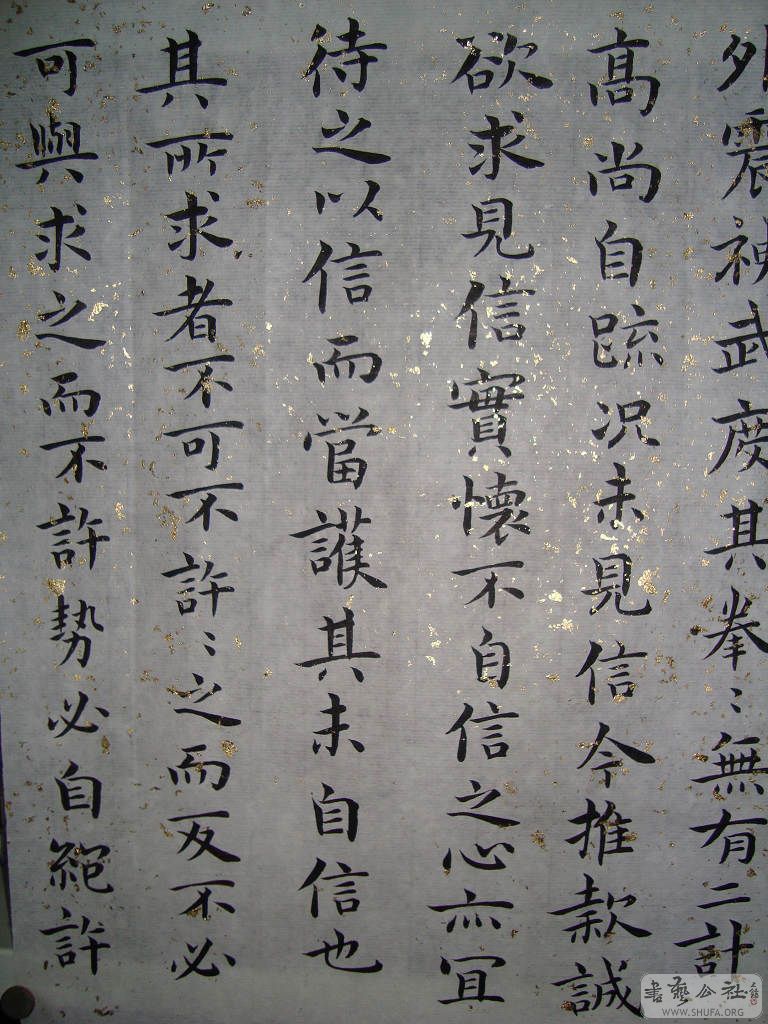 外震神武度其拳〻無有二計
高尚自疏况未見信今推款誠
欲求見信實懷不自信之心亦宜
待之以信而當護其未自信也
其所求者不可不許〻之而反不必
可與求之而不許勢必自絕許
書藝公社
WWW.SHUFA.ORG